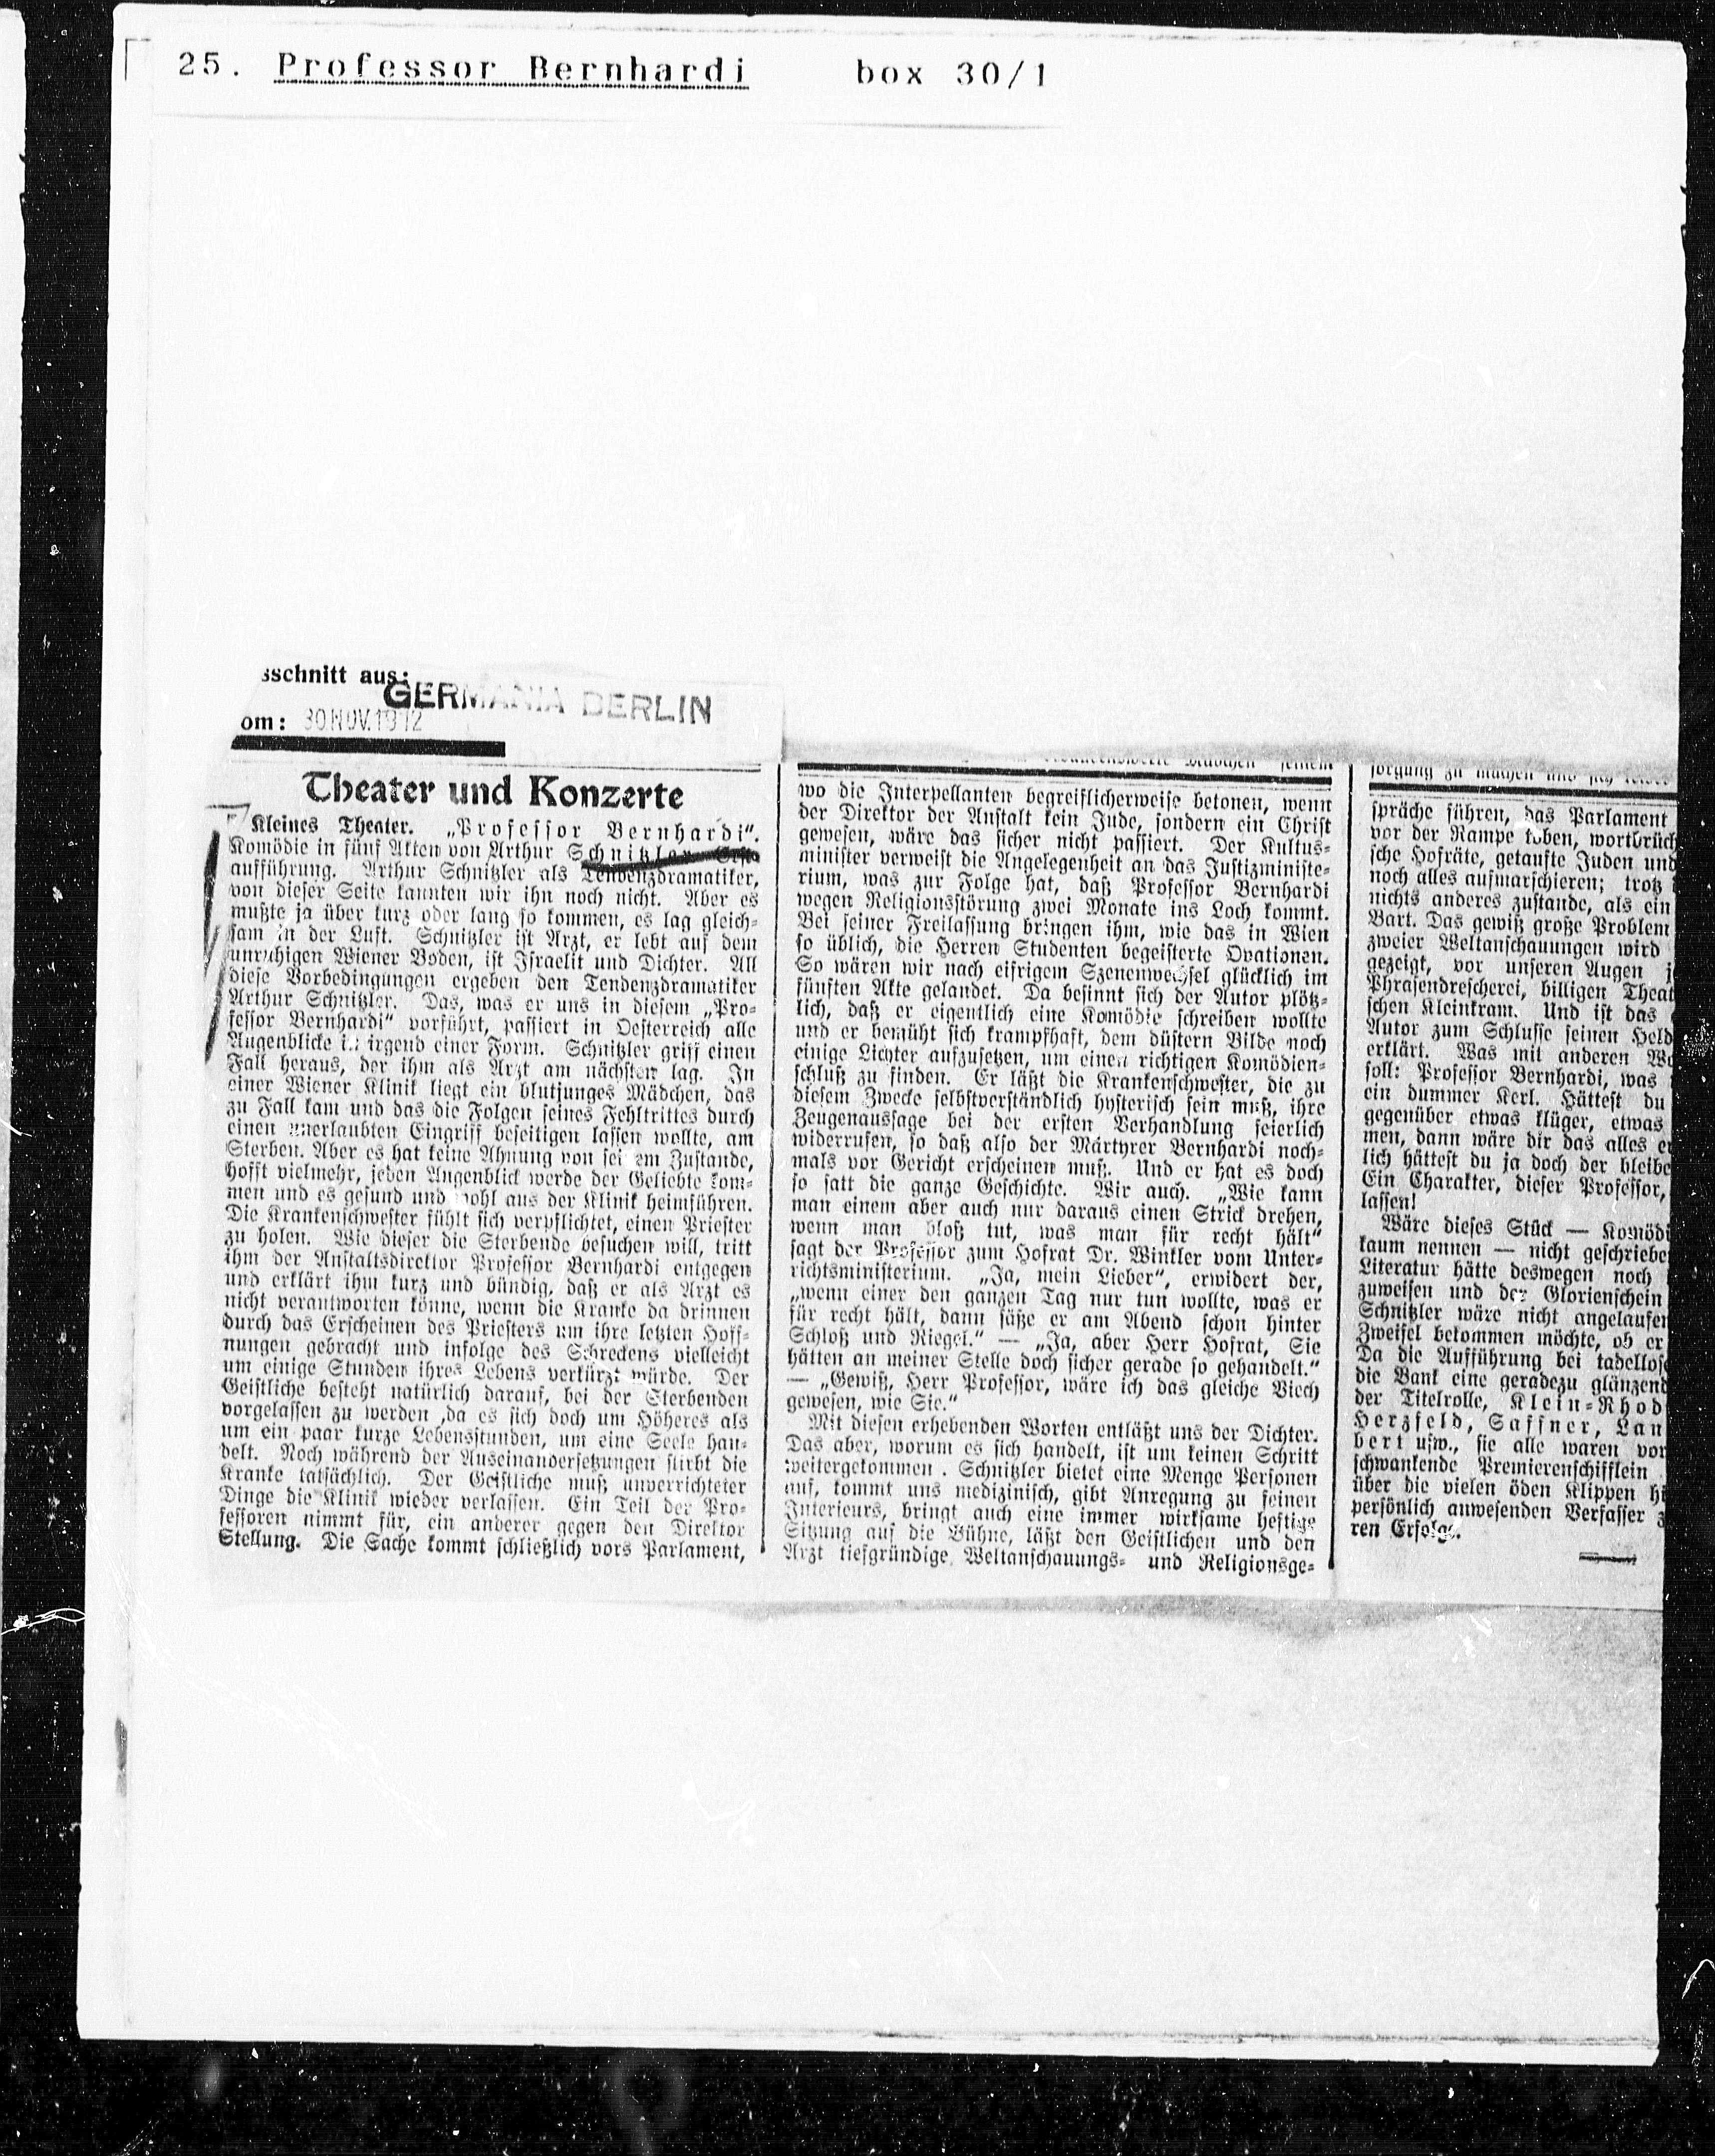 25. Professor Bernhardi box 30/1
sschnitt aus:
GERMANIA BERLIN
om: 30 NOV. 1912
Theater und Konzerte
Kleines Theater. „Professor Bernhardi“.
Komödie in fünf Akten von Arthur Schnitzler. Erst-
aufführung. Arthur Schnitzler als Tendenzdramatiker,
von dieser Seite kannten wir ihn noch nicht. Aber es
mußte ja über kurz oder lang so kommen, es lag gleich-
sam in der Luft. Schnitzler ist Arzt, er lebt auf dem
unruhigen Wiener Boden, ist Israelit und Dichter. All
diese Vorbedingungen ergeben den Tendenzdramatiker
Arthur Schnitzler. Das, was er uns in diesem „Pro-
fessor Bernhardi“ vorführt, passiert in Oesterreich alle
Augenblicke in irgend einer Form. Schnitzler griff einen
Fall heraus, der ihm als Arzt am nächsten lag. In
einer Wiener Klinik liegt ein blutjunges Mädchen, das
zu Fall kam und das die Folgen seines Fehltrittes durch
einen unerlaubten Eingriff beseitigen lassen wollte, am
Sterben. Aber es hat keine Ahnung von seinem Zustande,
hofft vielmehr, jeden Augenblick werde der Geliebte kom-
men und es gesund und wohl aus der Klinik heimführen.
Die Krankenschwester fühlt sich verpflichtet, einen Priester
zu holen. Wie dieser die Sterbende besuchen will, tritt
ihm der Anstaltsdirektor Professor Bernhardi entgegen
und erklärt ihm kurz und bündig, daß er als Arzt es
nicht verantworten könne, wenn die Kranke da drinnen
durch das Erscheinen des Priesters um ihre letzten Hoff-
nungen gebracht und infolge des Schreckens vielleicht
um einige Stunden ihres Lebens verkürzt würde. Der
Geistliche besteht natürlich darauf, bei der Sterbenden
vorgelassen zu werden ,da es sich doch um Höheres als
um ein paar kurze Lebensstunden, um eine Seele han-
delt. Noch während der Auseinandersetzungen stirbt die
Kranke tatsächlich. Der Geistliche muß unverrichteter
Dinge die Klinik wieder verlassen. Ein Teil der Pro-
fessoren nimmt für, ein anderer gegen den Direktor
Stellung. Die Sache kommt schließlich vors Parlament,
wo die Interpellanten begreiflicherweise betonen, wenn
der Direktor der Anstalt kein Jude, sondern ein Christ
gewesen, wäre das sicher nicht passiert. Der Kultus-
minister verweist die Angelegenheit an das Justizministe-
rium, was zur Folge hat, daß Professor Bernhardi
wegen Religionsstörung zwei Monate ins Loch kommt.
Bei seiner Freilassung bringen ihm, wie das in Wien
so üblich, die Herren Studenten begeisterte Ovationen.
So wären wir nach eifrigem Szenenwechsel glücklich im
fünften Akte gelandet. Da besinnt sich der Autor plötz-
lich, daß er eigentlich eine Komödie schreiben wollte
und er bemüht sich krampfhaft, dem düstern Bilde noch
einige Lichter aufzusetzen, um einen richtigen Komödien-
schluß zu finden. Er läßt die Krankenschwester, die zu
diesem Zwecke selbstverständlich hysterisch sein muß, ihre
Zeugenaussage bei der ersten Verhandlung feierlich
widerrufen, so daß also der Märtyrer Bernhardi noch-
mals vor Gericht erscheinen muß. Und er hat es doch
so satt die ganze Geschichte. Wir auch. „Wie kann
man einem aber auch nur daraus einen Strick drehen,
wenn man bloß tut, was man für recht hält“
sagt der Professor zum Hofrat Dr. Winkler vom Unter-
richtsministerium. „Ja, mein Lieber“, erwidert der,
„wenn einer den ganzen Tag nur tun wollte, was er
für recht hält, dann säße er am Abend schon hinter
Schloß und Riegel.“ — „Ja, aber Herr Hofrat, Sie
hätten an meiner Stelle doch sicher gerade so gehandelt.“
— „Gewiß, Herr Professor, wäre ich das gleiche Viech
gewesen, wie Sie.“
Mit diesen erhebenden Worten entläßt uns der Dichter.
Das aber, worum es sich handelt, ist um keinen Schritt
weitergekommen. Schnitzler bietet eine Menge Personen
auf, kommt uns medizinisch, gibt Anregung zu feinen
Interieurs, bringt auch eine immer wirksame heftige
Sitzung auf die Bühne, läßt den Geistlichen und den
Arzt tiefgründige Weltanschauungs- und Religionsge-
spräche führen, das Parlament
vor der Rampe toben, wortbrüch
sche Hofräte, getaufte Juden und
noch alles aufmarschieren; trotz
nichts anderes zustande, als ein
Bart. Das gewiß große Problem
zweier Weltanschauungen wird
gezeigt, vor unseren Augen
Phrasendrescherei, billigen Theat
schen Kleinkram. Und ist das
Autor zum Schlusse seinen Held
erklärt. Was mit anderen Wo
soll: Professor Bernhardi, was
ein dummer Kerl. Hättest du
gegenüber etwas klüger, etwas
men, dann wäre dir das alles e
lich hättest du ja doch der bleibe
Ein Charakter, dieser Professor,
lassen!
Wäre dieses Stück — Komödi
kaum nennen — nicht geschriebe
Literatur hätte deswegen noch
zuweisen und der Glorienschein
Schnitzler wäre nicht angelaufen
Zweifel bekommen möchte, ob er
Da die Aufführung bei tadellose
die Bank eine geradezu glänzend
der Titelrolle, Klein-Rhod
Herzfeld, Saffner, Lan
bert usw., sie alle waren vor
schwankende Premierenschifflein
über die vielen öden Klippen hi
persönlich anwesenden Verfasser z
ren Erfolge.